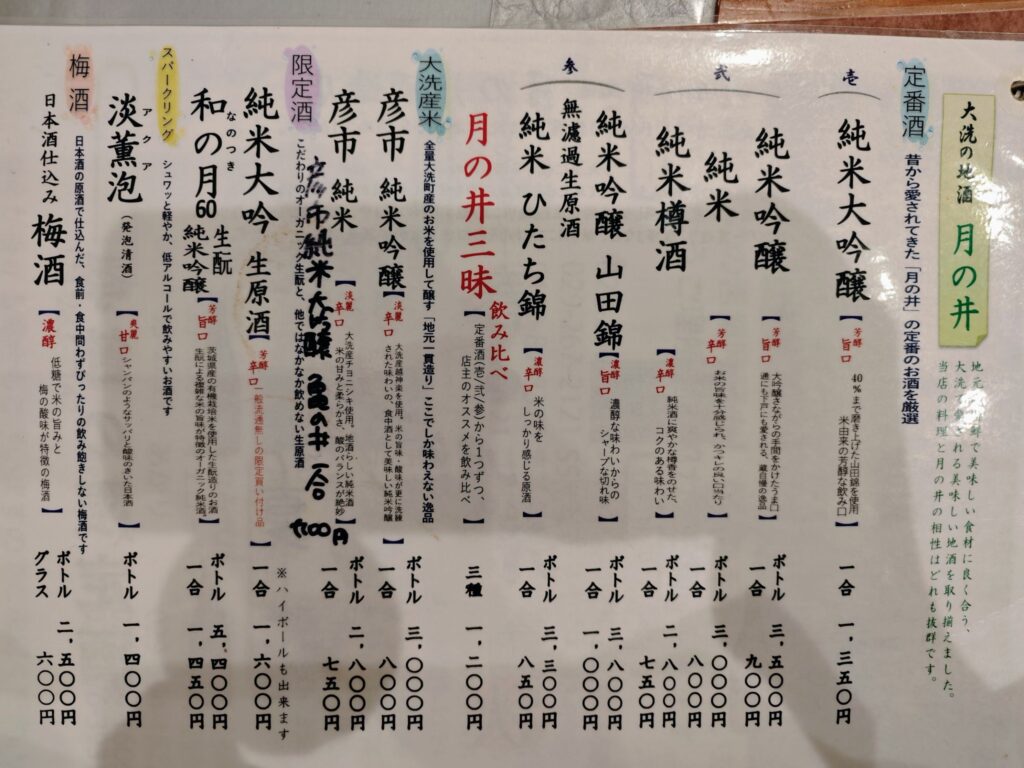 大洗の地酒 月の井
大洗で愛される美味しい地酒を取り揃えました。
当店の料理と月の井の相性はどれも抜群です。
定番酒 昔から愛されてきた「月の井」の定番のお酒を厳選
壱
純米大吟醸【芳醇旨口 40%まで磨き上げた山田錦を使用 米由来の芳醇な飲み口】一合 一,三五〇円
弐
純米吟醸【芳醇旨口 大吟醸さながらの手間をかけたうま口 通にも下戸にも愛される、蔵自慢の逸品】ボトル 三,五〇〇円
一合 九〇〇円
純米【芳醇辛口 お米の旨味を十分感じられ、かつキレの良い口当たり】ボトル 三,〇〇〇円
一合 八〇〇円
純米樽酒【濃醇辛口 純米酒に爽やかな樽香をのせた、コクのある味わい】ボトル 二,八〇〇円
一合 七五〇円
参
無濾過生原酒
純米吟醸 山田錦【濃醇旨口 濃醇な味わいからのシャープな切れ味】ボトル 三,八〇〇円
一合 一,〇〇〇円
純米 ひたち錦【濃醇辛口 米の味をしっかり感じる原酒】ボトル 三,三〇〇円
一合 八五〇円
月の井三昧 飲み比べ【定番酒〈壱〉〈弐〉〈参〉から1つずつ、店主のオススメを飲み比べ】三種 一,二〇〇円
大洗産米 全量大洗町産のお米を使用して醸す「地元一貫造り」ここでしか味わえない逸品
彦市 純米吟醸【淡麗辛口 大洗産越神楽を使用。米の旨味・酸味が更に洗練された味わいの、食中酒として美味しい純米吟醸】ボトル 三,〇〇〇円
一合 八〇〇円
彦市 純米【淡麗辛口 大洗産チヨニシキ使用。地酒らしい純米酒 米の甘みと柔らかさ、酸のバランスが絶妙】ボトル 二,八〇〇円
一合 七五〇円
純米大吟醸
限定酒 こだわりのオーガニック生酛と、他ではなかなか飲めない生原酒
※ハイボールも出来ます
純米大吟 生原酒【芳醇辛口 一般流通無しの限定買い付け品】一合 一,六〇〇円
和の月60 なのつき 生酛 純米吟醸【芳醇旨口 茨城県産の有機栽培米を使用した生酛造りのお酒 生酛による複雑な米の旨味が特徴のオーガニック純米酒。】ボトル 五,四〇〇円
一合 一,四五〇円
スパークリング シュワッと軽やか、低アルコールで飲みやすいお酒です
淡薫泡 アクア（発泡清酒）【爽麗甘口 シャンパンのようなサッパリと酸味のきいた日本酒】ボトル 一,四〇〇円
梅酒 日本酒の原酒で仕込んだ、食前・食中問わずぴったりの飲み飽きしない梅酒です
日本酒仕込み 梅酒【濃醇 低糖で米の旨みと梅の酸味が特徴の梅酒】ボトル 二,五〇〇円
グラス 六〇〇円